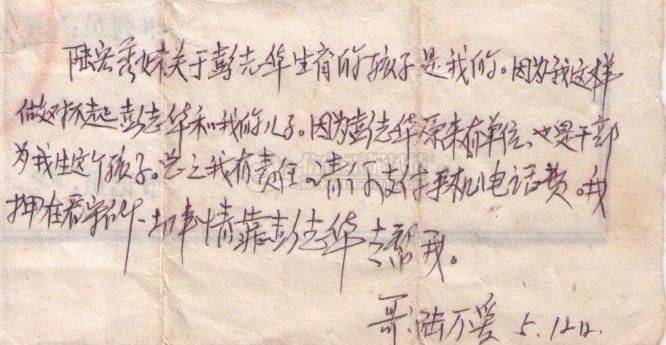 陆容秀妹关于彭志华生育的孩子是我的。因为我这样
做对不起彭志华和我的儿子。因为彭志华原来有单位、也是干部
为我生这个孩子。总之我有责任。请你支付手机电话费。我
押在看守所一切事情靠彭志华去帮我。
哥:陆万爱 5.12日.